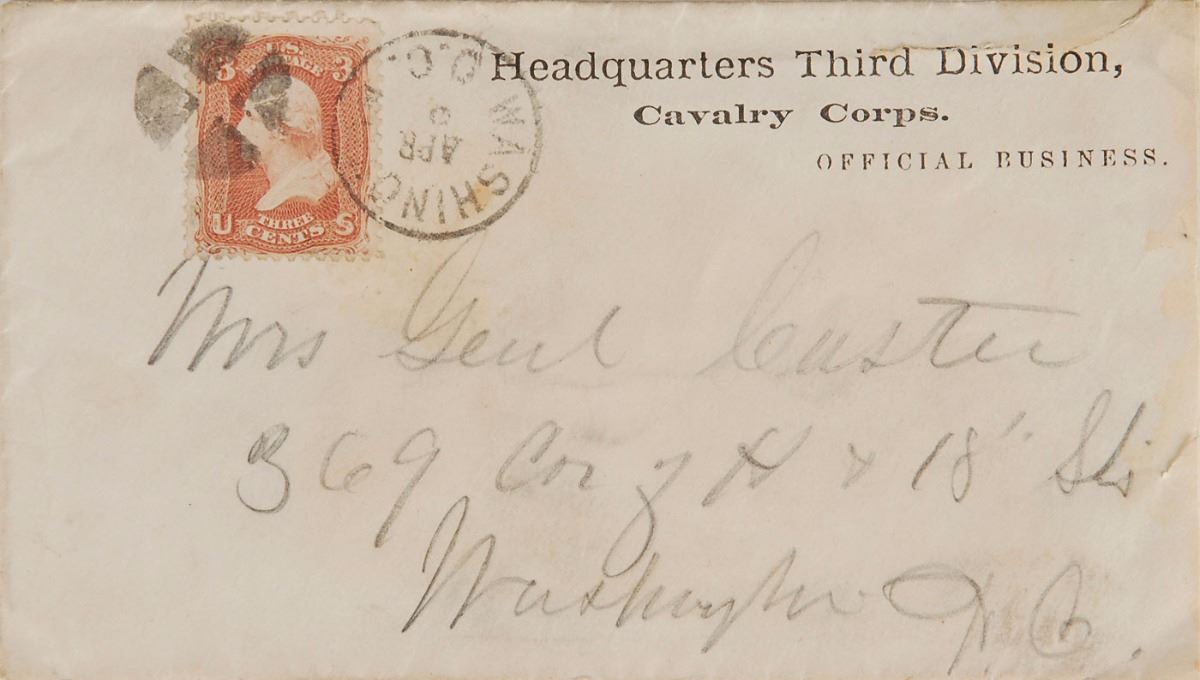 Headquarters Third Division,
Cavalry Corps.
OFFICIAL BUSINESS.
U.S. POSTAGE
3 3
U THREE CENTS S
WASHING. D.C.
APR
6
Mrs Genl Custer
369 Cor of H & 18" Sts
Washington D.C.